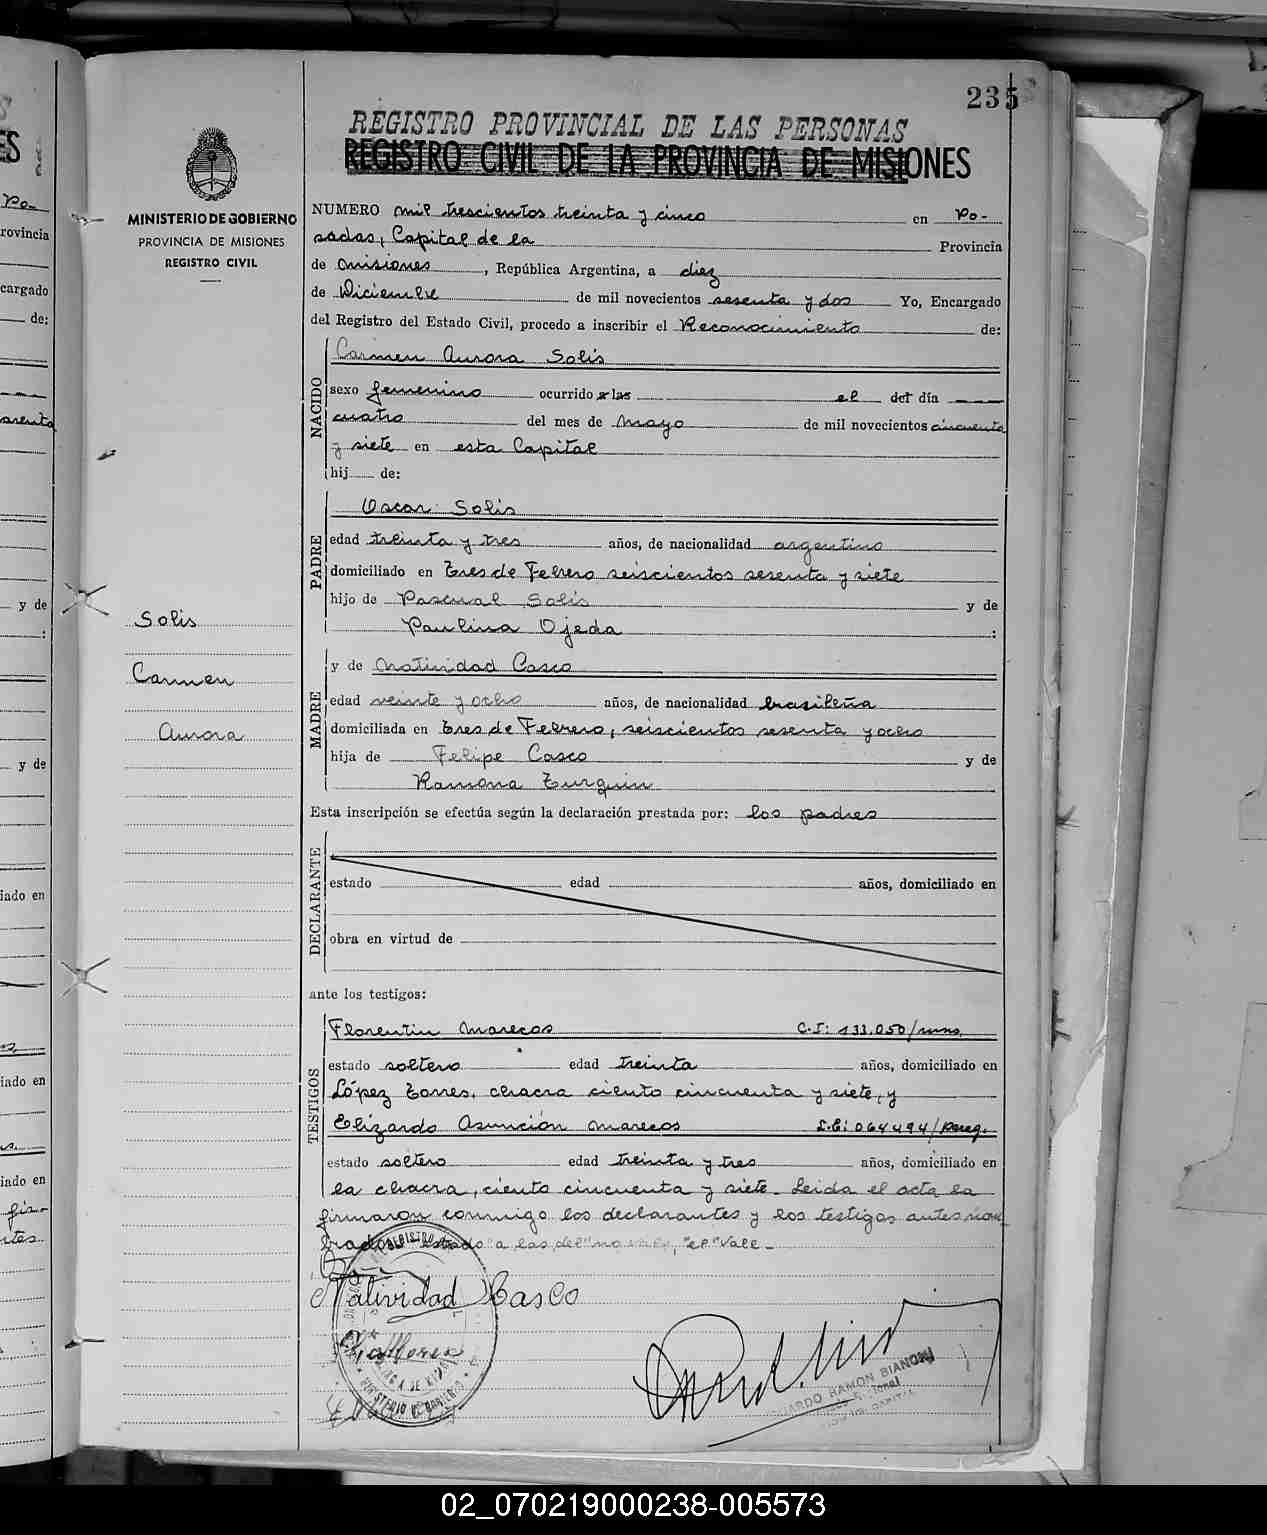 235
REGISTRO PROVINCIAL DE LAS PERSONAS
REGISTRO CIVIL DE LA PROVINCIA DE MISIONES
MINISTERIO DE GOBIERNO
PROVINCIA DE MISIONES
REGISTRO CIVIL
NUMERO mil trescientos treinta y cinco en Po-
sadas, Capital de la Provincia
de Misiones, República Argentina, a diez
de Diciembre de mil novecientos sesenta y dos Yo, Encargado
del Registro del Estado Civil, procedo a inscribir el Reconocimiento de:
NACIDO
Carmen Aurora Solis
sexo femenino ocurrido a las el del día
cuatro del mes de Mayo de mil novecientos cincuenta
y siete en esta Capital
hij de:
PADRE
Oscar Solis
edad treinta y tres años, de nacionalidad argentino
domiciliado en Tres de Febrero seiscientos sesenta y siete
hijo de Pascual Solis y de
Paulina Ojeda :
Solis
Carmen
Aurora
MADRE
y de Natividad Casco
edad veinte y ocho años, de nacionalidad brasileña
domiciliada en Tres de Febrero, seiscientos sesenta y ocho
hija de Felipe Casco y de
Ramona Turquin
Esta inscripción se efectúa según la declaración prestada por: los padres
DECLARANTE
estado edad años, domiciliado en
obra en virtud de
ante los testigos:
TESTIGOS
Florentin Marecos C.I: 133.050/mnes.
estado soltero edad treinta años, domiciliado en
López Torres, chacra ciento cincuenta y siete, y
Elizardo Asunción Marecos L.E: 064494/
estado soltero edad treinta y tres años, domiciliado en
la chacra, ciento cincuenta y siete. Leida el acta la
firmaron conmigo los declarantes y los testigos antes nom-
brados "a las del" no vale, "el" Vale-
Natividad Casco
EDUARDO RAMON BIANCHI
02_070219000238-005573